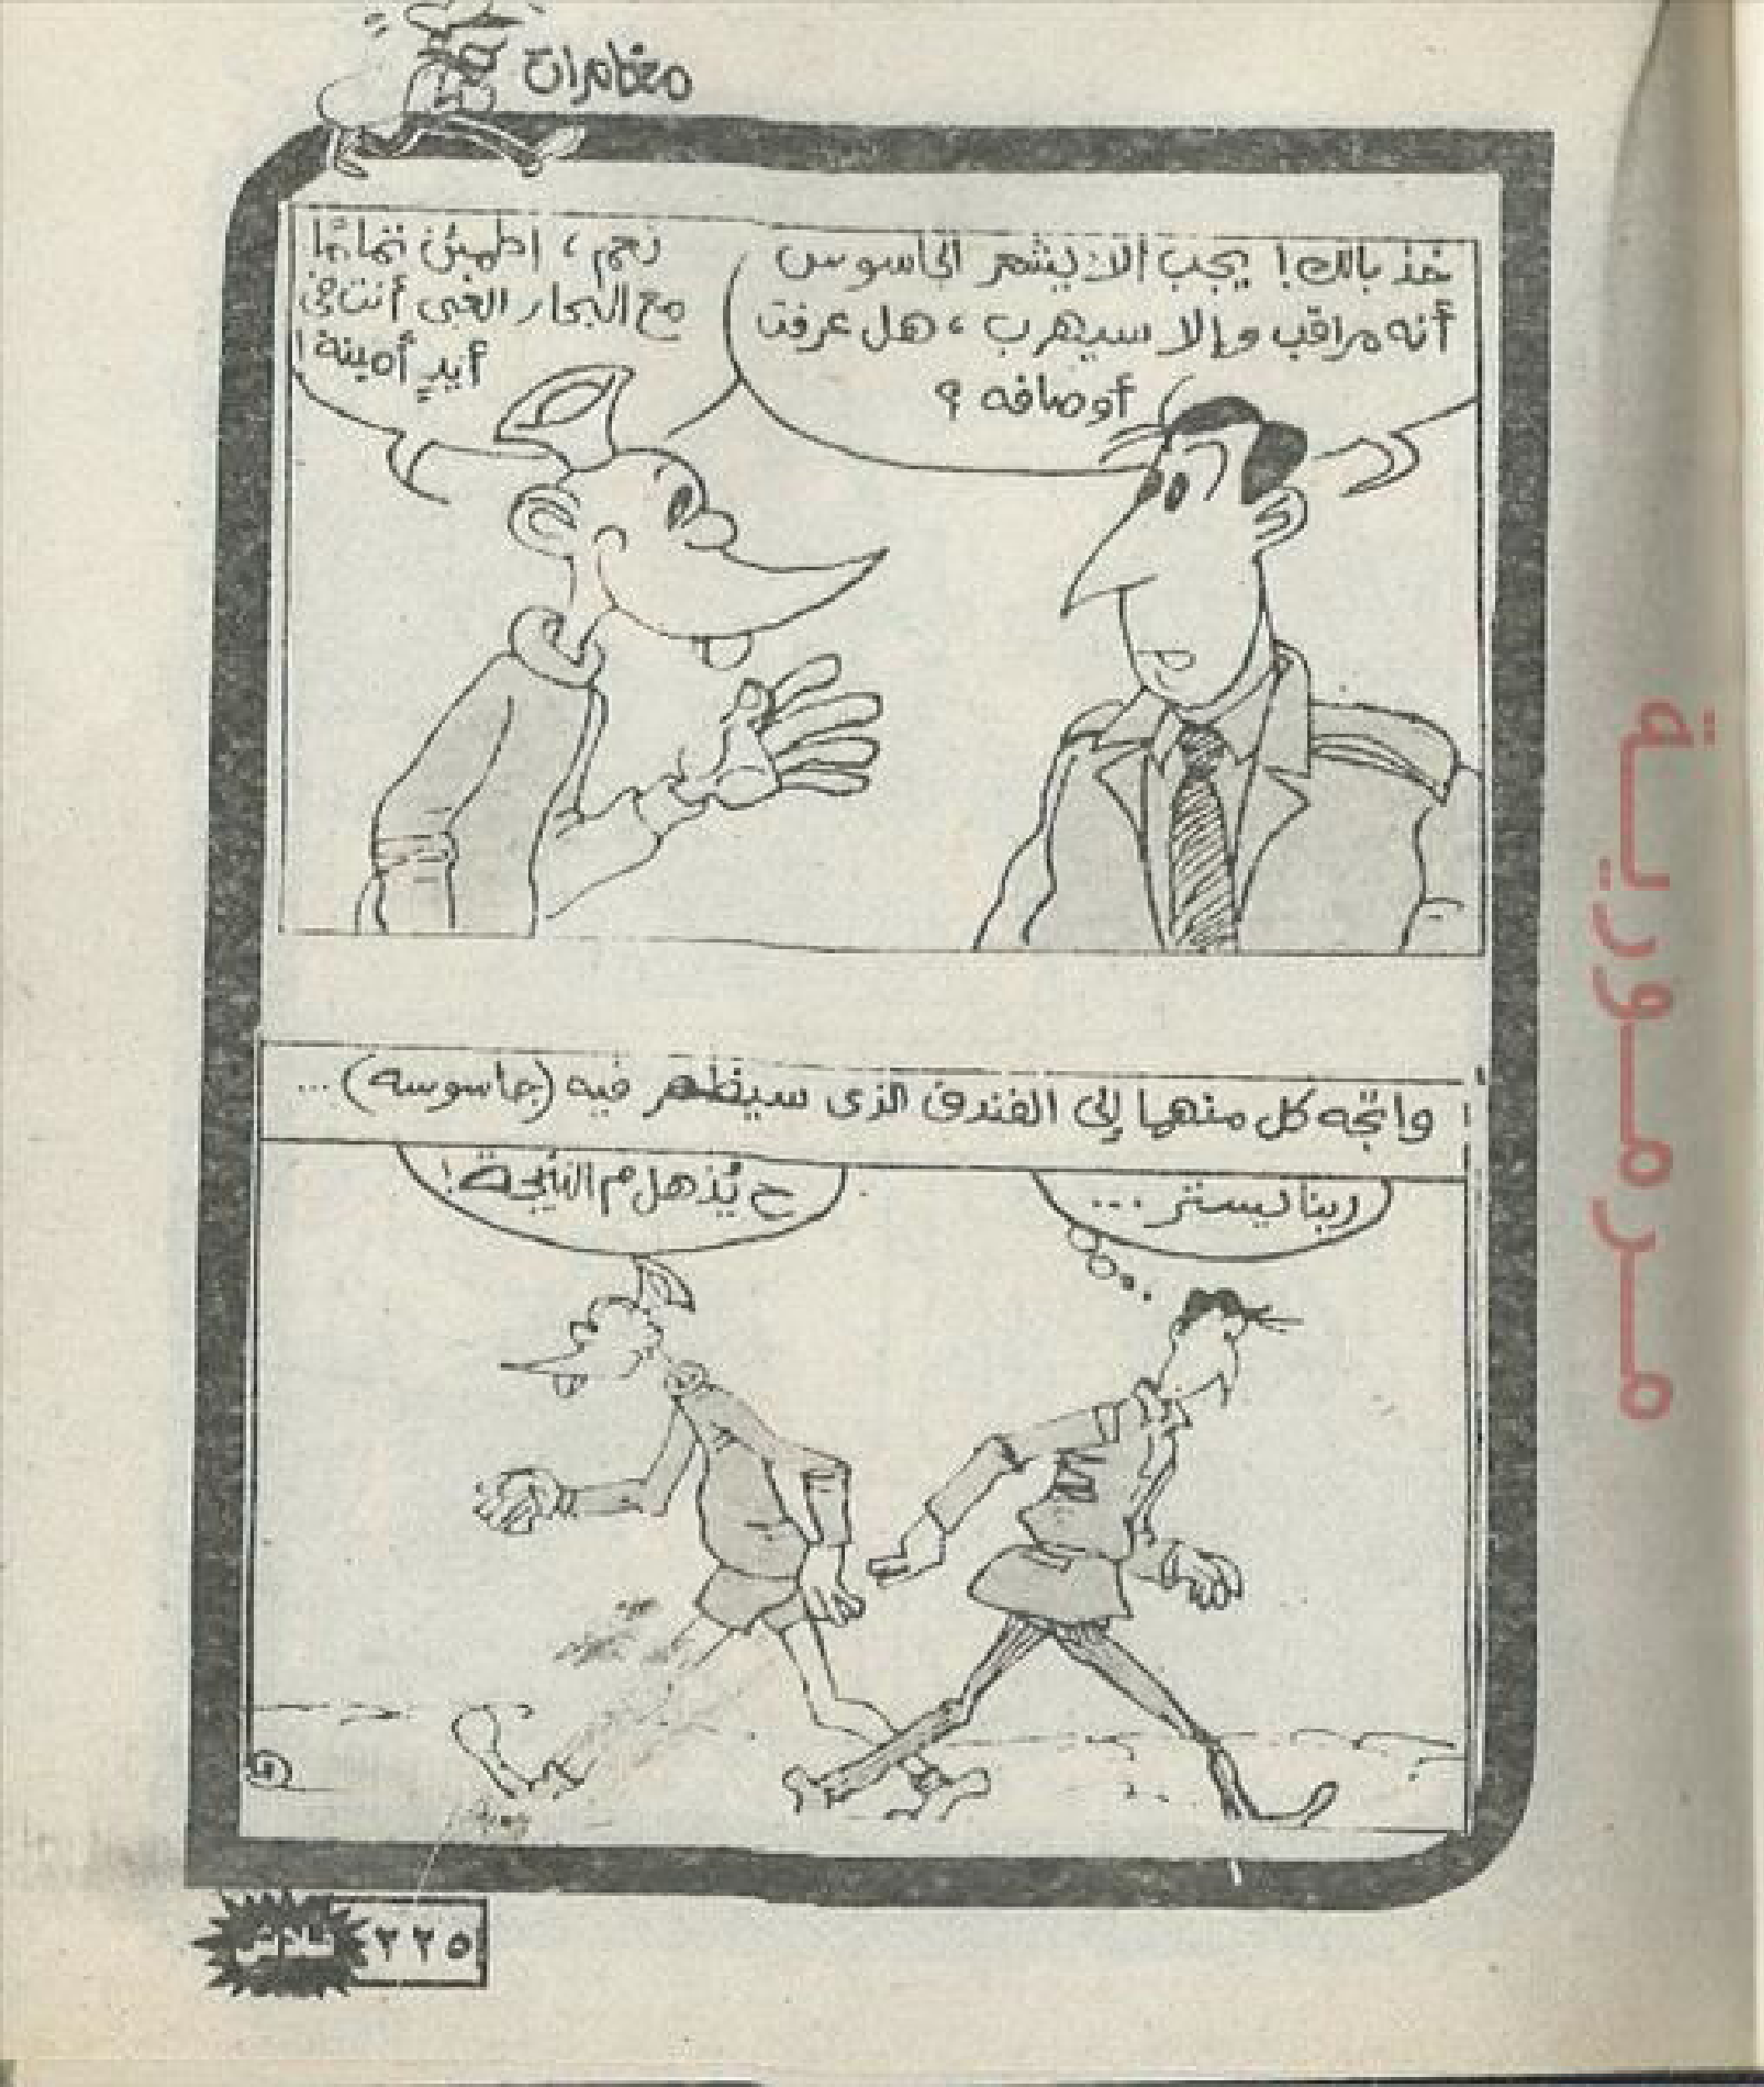 مغامرات
خذ بالك! يجب ألا يشعر الجاسوس
أنه مراقب وإلا سيهرب، هل عرفت
أوصافه؟
نعم، اطمئن تمامًا
مع البحار الغبى أنت فى
أيدٍ أمينة!
واتجه كل منهما إلى الفندق الذى سيظهر فيه (جاسوسه) ...
ربنا يستر ...
ح يُذهل م النتيجة!
٢٢٥
فلاش
مرمورية